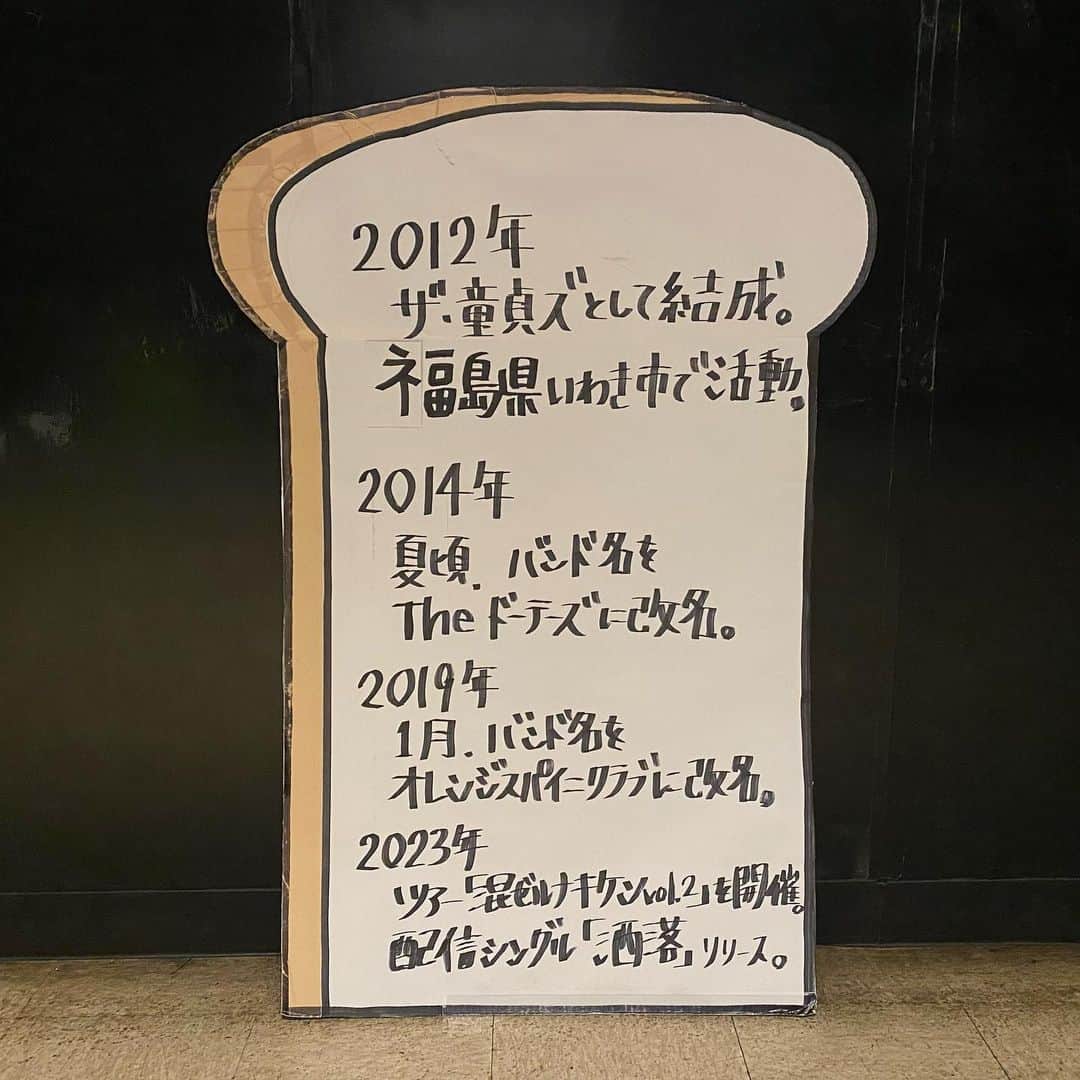 2012年
ザ・童貞ズとして結成。
福島県いわき市で活動。
2014年
夏頃、バンド名を
Theドーテーズに改名。
2019年
1月、バンド名を
オレンジスパイニクラブに改名。
2023年
ツアー「混ぜルナキケンvol.2」を開催。
配信シングル「洒落」リリース。